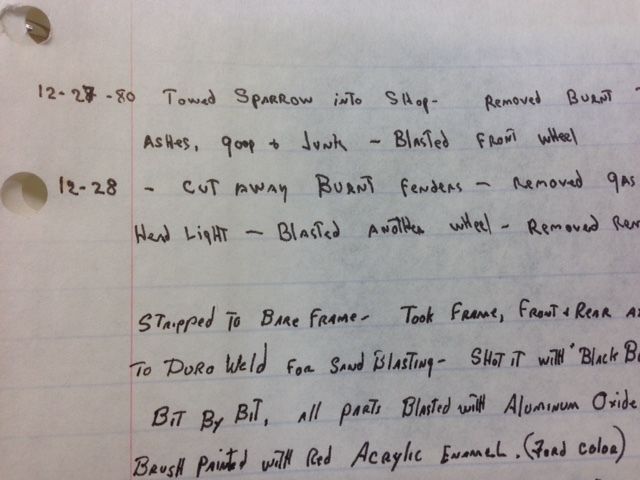 12-27-80 Towed Sparrow into Shop- Removed Burnt
Ashes, goop & Junk - Blasted Front wheel
12-28 - Cut away Burnt fenders - Removed gas
Head Light - Blasted Another wheel - Removed
Stripped To Bare Frame- Took Frame, Front & Rear
To Duro Weld For Sand Blasting- Shot it with "Black
Bit By Bit, all parts Blasted with Aluminum Oxide
Brush Painted with Red Acrylic Enamel. (Ford color)